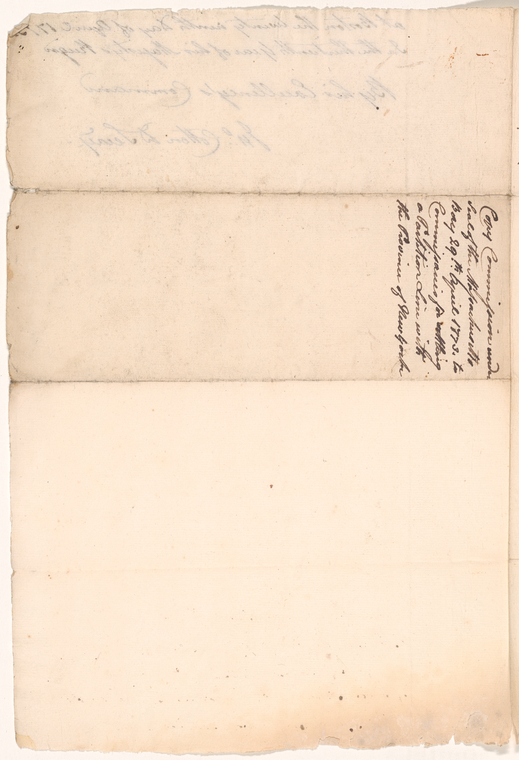 Copy Commission under
Seal of the Massachusetts
Bay 29th April 1773. to
Commissaries for settling
a Partition Line with
the Province of New York
at Boston the twenty ninth Day of April 1773
in the thirteenth Year of his Majesties Reign
By his Excellencys Command
Jno. Cotton D. Secry.